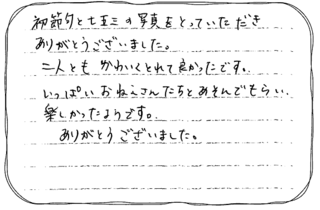 初節句と七五三の写真をとっていただき
ありがとうございました。
二人とも かわいくとれて良かったです。
いっぱい おねえさんたちとあそんでもらい、
楽しかったようです。
ありがとうございました。